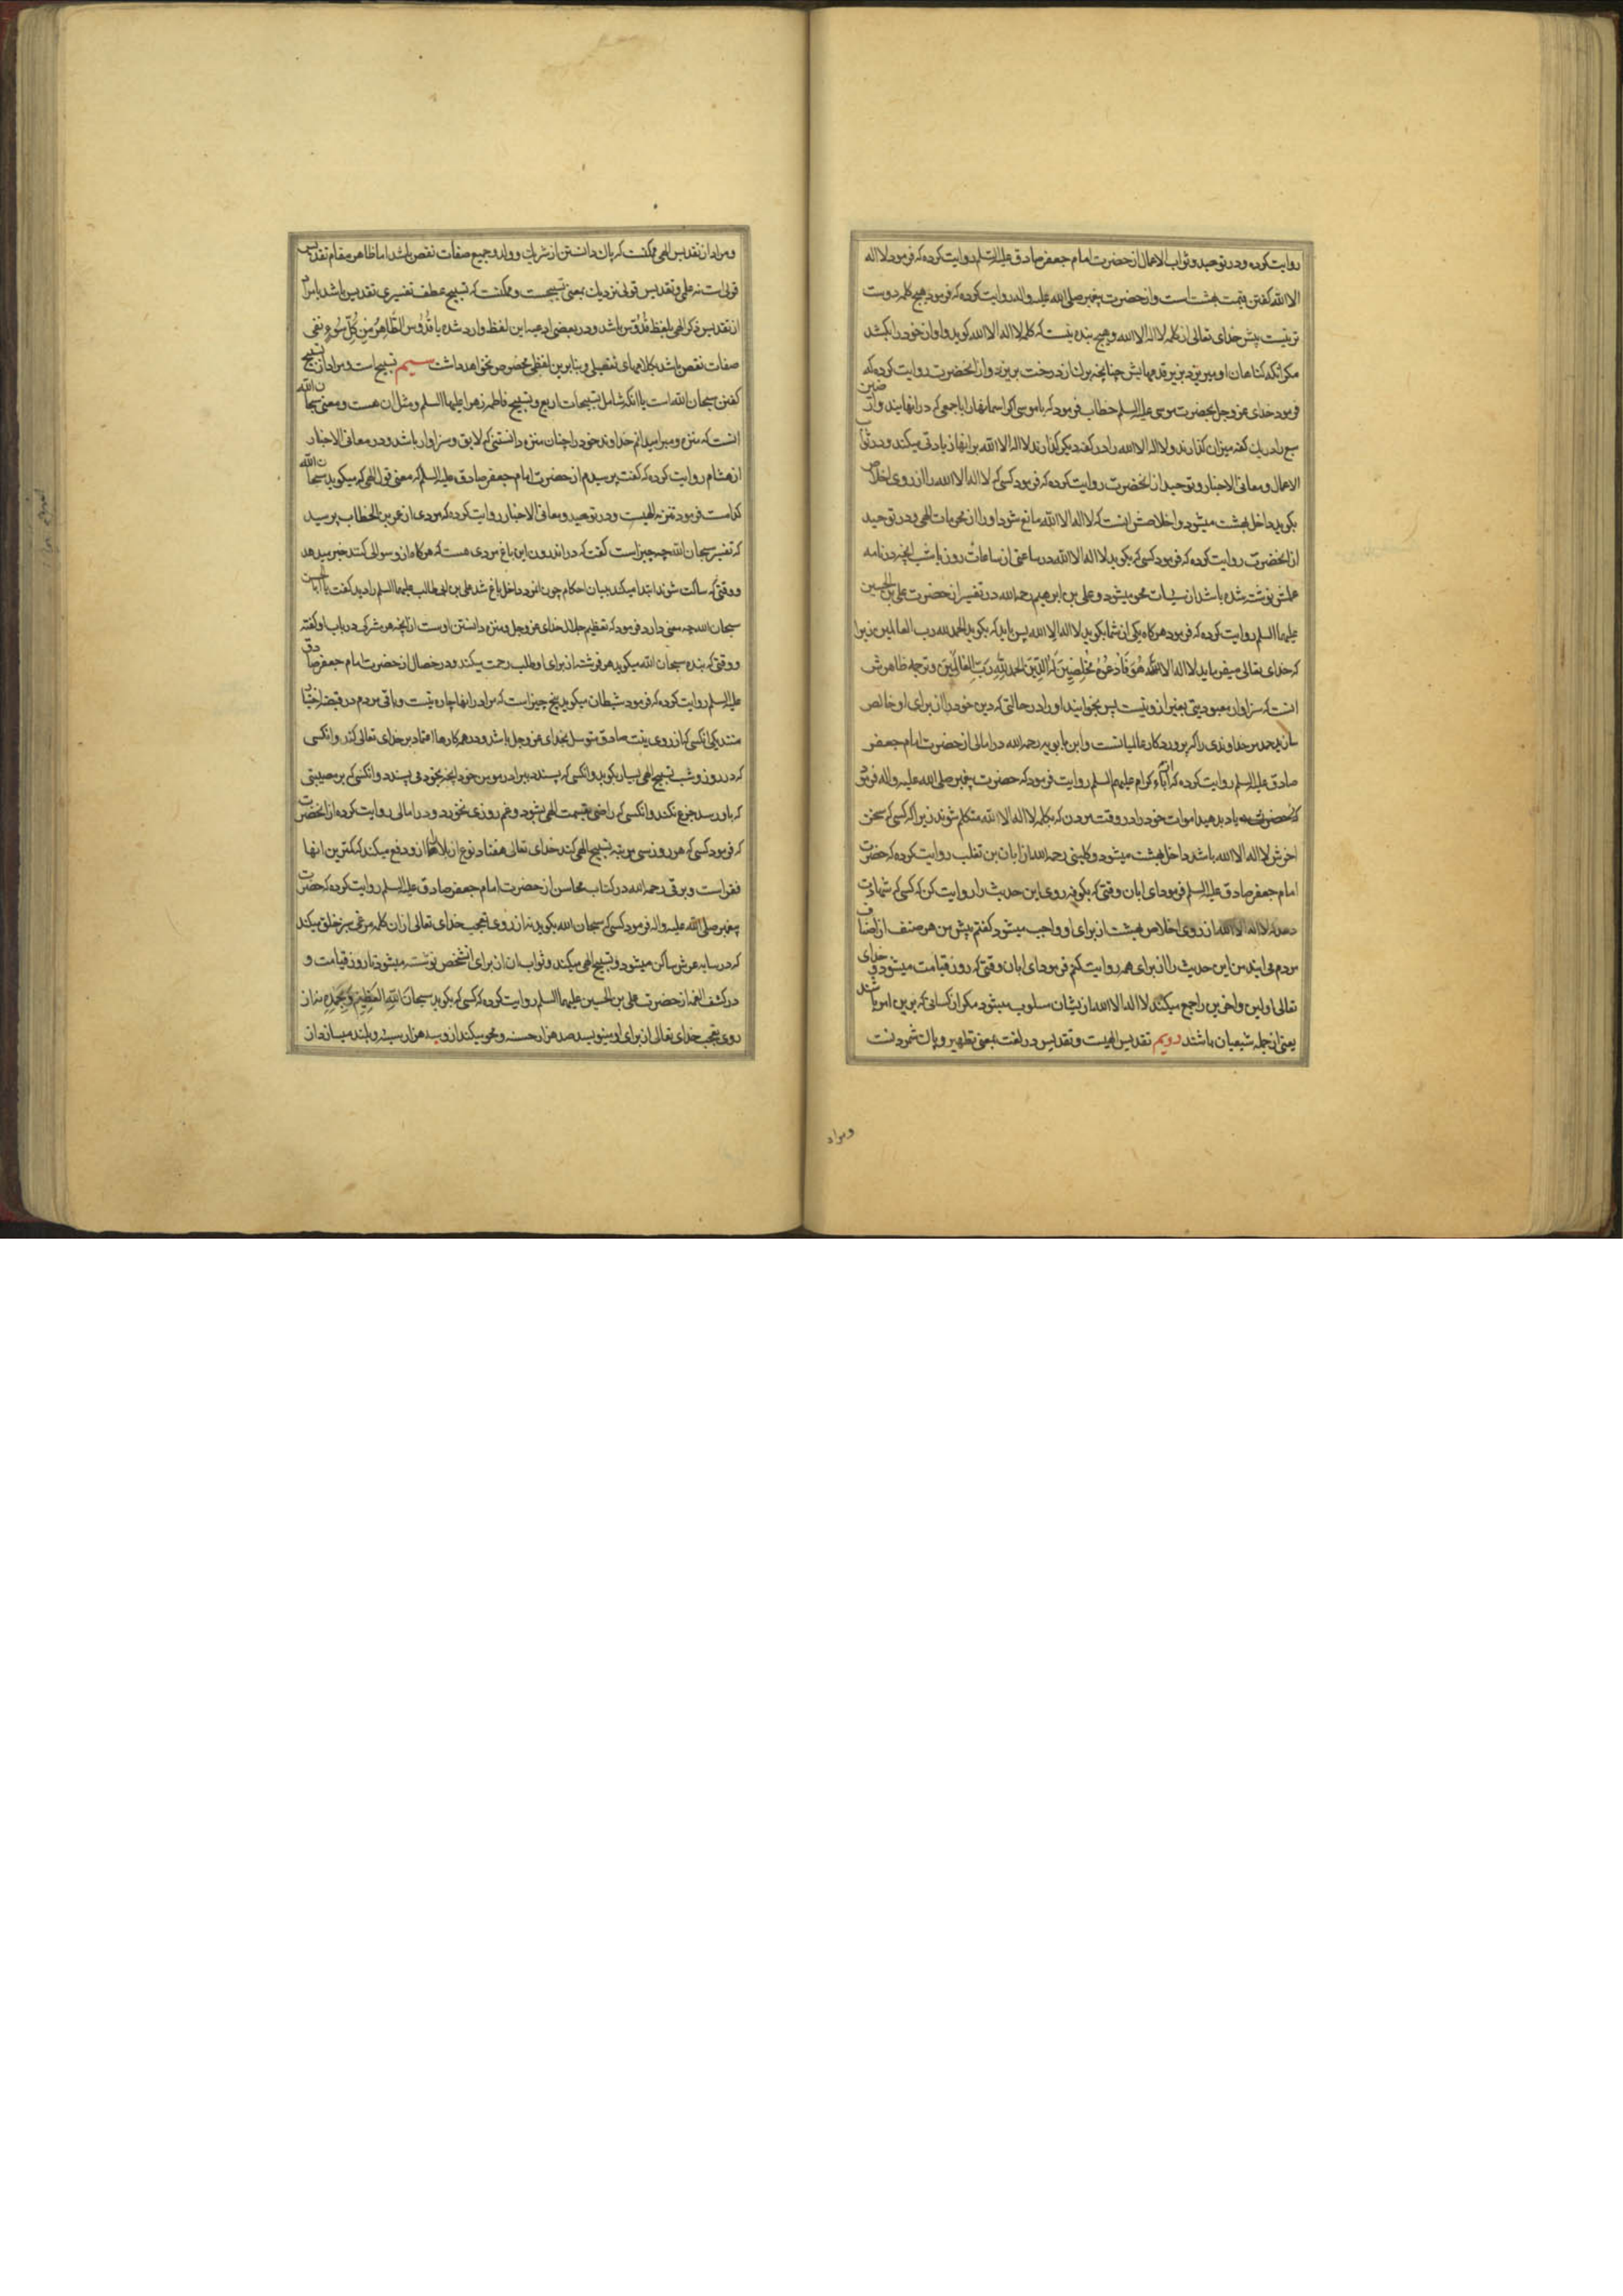 روایت کرده و در توحید و ثواب الاعمال از حضرت امام جعفر صادق علیه السلم روایت کرده که فرمود لا اله
الا الله کفتن قیمت بهشت است و از حضرت پیغمبر صلی الله علیه و اله روایت کرده که فرمود هیچ کلمه دوست
تر نیست پیش خدای تعالی از کلمه لا اله الا الله و هیچ بنده نیست که کلمه لا اله الا الله کوید و اواز خود را بکشد
مکر انکه کناهان او میریزد بزیر قدمهایش چنانچه برک از درخت بریزد و از انحضرت روایت کرده که
فرمود خدای عز و جل بحضرت موسی علیه السلم خطاب فرمود که یا موسی اکر اسمانها را با جمعی که در انهایند و ارضین
سبع را در یک کفه میزان کذارند و لا اله الا الله را در کفه دیکر کذارند لا اله الا الله بر انها زیادتی میکند و در ثواب
الاعمال و معانی الاخبار و توحید از انحضرت روایت کرده که فرمود کسی که لا اله الا الله را از روی اخلاص
بکوید داخل بهشت میشود و اخلاصش اینست که لا اله الا الله مانع شود او را از محرمات الهی و در توحید
از انحضرت روایت کرده که فرمود کسی که بکوید لا اله الا الله در ساعتی از ساعات روز یا شب انچه در نامه
عملش نوشته شده باشد از سیئات محو میشود و علی بن ابراهیم رحمه الله در تفسیر از حضرت علی بن الحسین
علیهما السلم روایت کرده که فرمود هرکاه یکی از شما بکوید لا اله الا الله پس باید که بکوید الحمد لله رب العالمین زیرا
که خدای تعالی میفرماید لا اله الا الله هُوَ فَادْعُوهُ مُخْلِصِینَ لَهُ الدِّینَ الْحَمْدُ لِلّٰهِ رَبِّ الْعَالَمِینَ و ترجمه ظاهرش
انست که سزاوار معبودیتی بغیر از و نیست پس بخوانید او را در حالتی که دین خود را از برای او خالص
سازید حمد مر خداوندی را که پروردکار عالمیانست و ابن بابویه رحمه الله در امالی از حضرت امام جعفر
صادق علیه السلم روایت کرده که از آباء کرام علیهم السلم روایت فرمود که حضرت پیغمبر صلی الله علیه و اله فرمود
که یاد بدهید اموات خود را در وقت مردن که بکلمه لا اله الا الله متکلم شوند زیرا که کسی که سخن
اخرش لا اله الا الله باشد داخل بهشت میشود و کلینی رحمه الله از ابان بن تغلب روایت کرده که حضرت
امام جعفر صادق علیه السلم فرمود ای ابان وقتی که بکوفه روی این حدیث را روایت کن که کسی که شهادت
دهد لا اله الا الله از روی اخلاص بهشت از برای او واجب میشود کفتم پیش من هر صنف از اصناف
مردم می ایند من این حدیث را از برای همه روایت کنم فرمود ای ابان وقتی که روز قیامت میشود و خدای
تعالی اولین و اخرین را جمع میکند لا اله الا الله از یشان مسلوب میشود مکر از کسانی که برین امر باشند
یعنی از جمله شیعیان باشند دویم تقدیس الهیست و تقدیس در لغت بمعنی تطهیر و پاک شمردنست
و مراد
و مراد از تقدیس الهی ممکنست که پاک دانستن از شریک و ولد و جمیع صفات نقص باشد اما ظاهر مقام تقدیس
قولی است نه علمی و تقدیس قولی نزدیک بمعنی تسبیحست و ممکنست که تسبیح عطف تفسیری تقدیس باشد یا مراد
از تقدیس ذکر الهی بلفظ قدوس باشد و در بعضی ادعیه این لفظ وارد شده یا قُدُّوسُ الطَّاهِرُ مِنْ کُلِّ سُوءٍ نفی
صفات نقص باشد بکلامهای تفصیلی و بنابرین لفظی مخصوص نخواهد داشت سیم تسبیح است و مراد از تسبیح
کفتن سبحان الله است یا انکه شامل تسبیحات اربع و تسبیح فاطمه زهرا علیها السلم و مثل ان هست و معنی سبحان الله
انست که منزه و مبرا میدانم خداوند خود را چنان منزه دانستنی که لایق و سزاوار باشد و در معانی الاخبار
از هشام روایت کرده که کفت پرسیدم از حضرت امام جعفر صادق علیه السلم که معنی قول الهی که میکوید سبحان الله
کدامست فرمود تنزیه الهیست و در توحید و معانی الاخبار روایت کرده که مردی از عمر بن الخطاب پرسید
که تفسیر سبحان الله چه چیز است کفت که در اندرون این باغ مردی هست که هرکاه از و سوالی کنند خبر میدهد
و وقتی که ساکت شوند ابتدا میکند ببیان احکام چون انمرد داخل باغ شد علی بن ابی طالب علیهما السلم را دید کفت یا ابا الحسن
سبحان الله چه معنی دارد فرمود که تعظیم جلال خدای عز و جل و منزه دانستن اوست از انچه هر مشرکی در باب او کفته
و وقتی که بنده سبحان الله میکوید هر فرشته از برای او طلب رحمت میکند و در خصال از حضرت امام جعفر صادق
علیه السلم روایت کرده که فرمود شیطان میکوید پنج چیز است که مرا در انها چاره نیست و باقی مردم در قبضه اختیار
منند یکی انکسی که از روی نیت صادق متوسل بخدای عز و جل باشد و در همه کارها اعتماد بر خدای تعالی کند و انکسی
که در روز و شب تسبیح الهی بسیار بکوید و انکسی که پسندد ببرادر مومن خود انچه بخود می پسندد و انکسی که بر مصیبتی
که باو رسد جزع نکند و انکسی که راضی بقسمت الهی بشود و غم روزی نخورد و در امالی روایت کرده از انحضرت
که فرمود کسی که هر روز سی مرتبه تسبیح الهی کند خدای تعالی هفتاد نوع از بلاها را ازو دفع میکند که کمترین انها
فقر است و برقی رحمه الله در کتاب محاسن از حضرت امام جعفر صادق علیه السلم روایت کرده که حضرت
پیغمبر صلی الله علیه و اله فرمود کسی که سبحان الله بکوید نه از روی تعجب خدای تعالی از ان کلمه مرغی سبز خلق میکند
که در سایه عرش ساکن میشود و تسبیح الهی میکند و ثواب ان از برای انشخص نوشته میشود تا روز قیامت و
در کشف الغمه از حضرت علی بن الحسین علیهما السلم روایت کرده که کسی که بکوید سبحان اللهِ الْعَظِیمِ وَ بِحَمْدِهِ نه از
روی تعجب خدای تعالی از برای او مینویسد صد هزار حسنه و محو میکند از و سه هزار سیئه و بلند میسازد از